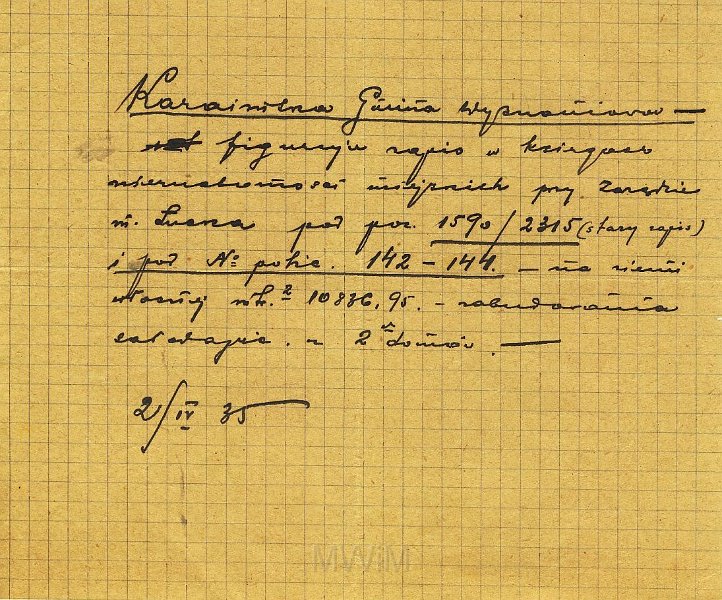 Karaimska Gmina Wyznaniowa —
figuruje zapis w księgach
nieruchomości miejskich przy Zarządzie
m. Łucka pod poz. 1590/2315 (stary zapis)
i pod № polic. 142 – 144. – na ziemi
własnej mk.² 10836,95. – zabudowania
z 2ch domów. —
2/IV 35
MWiM